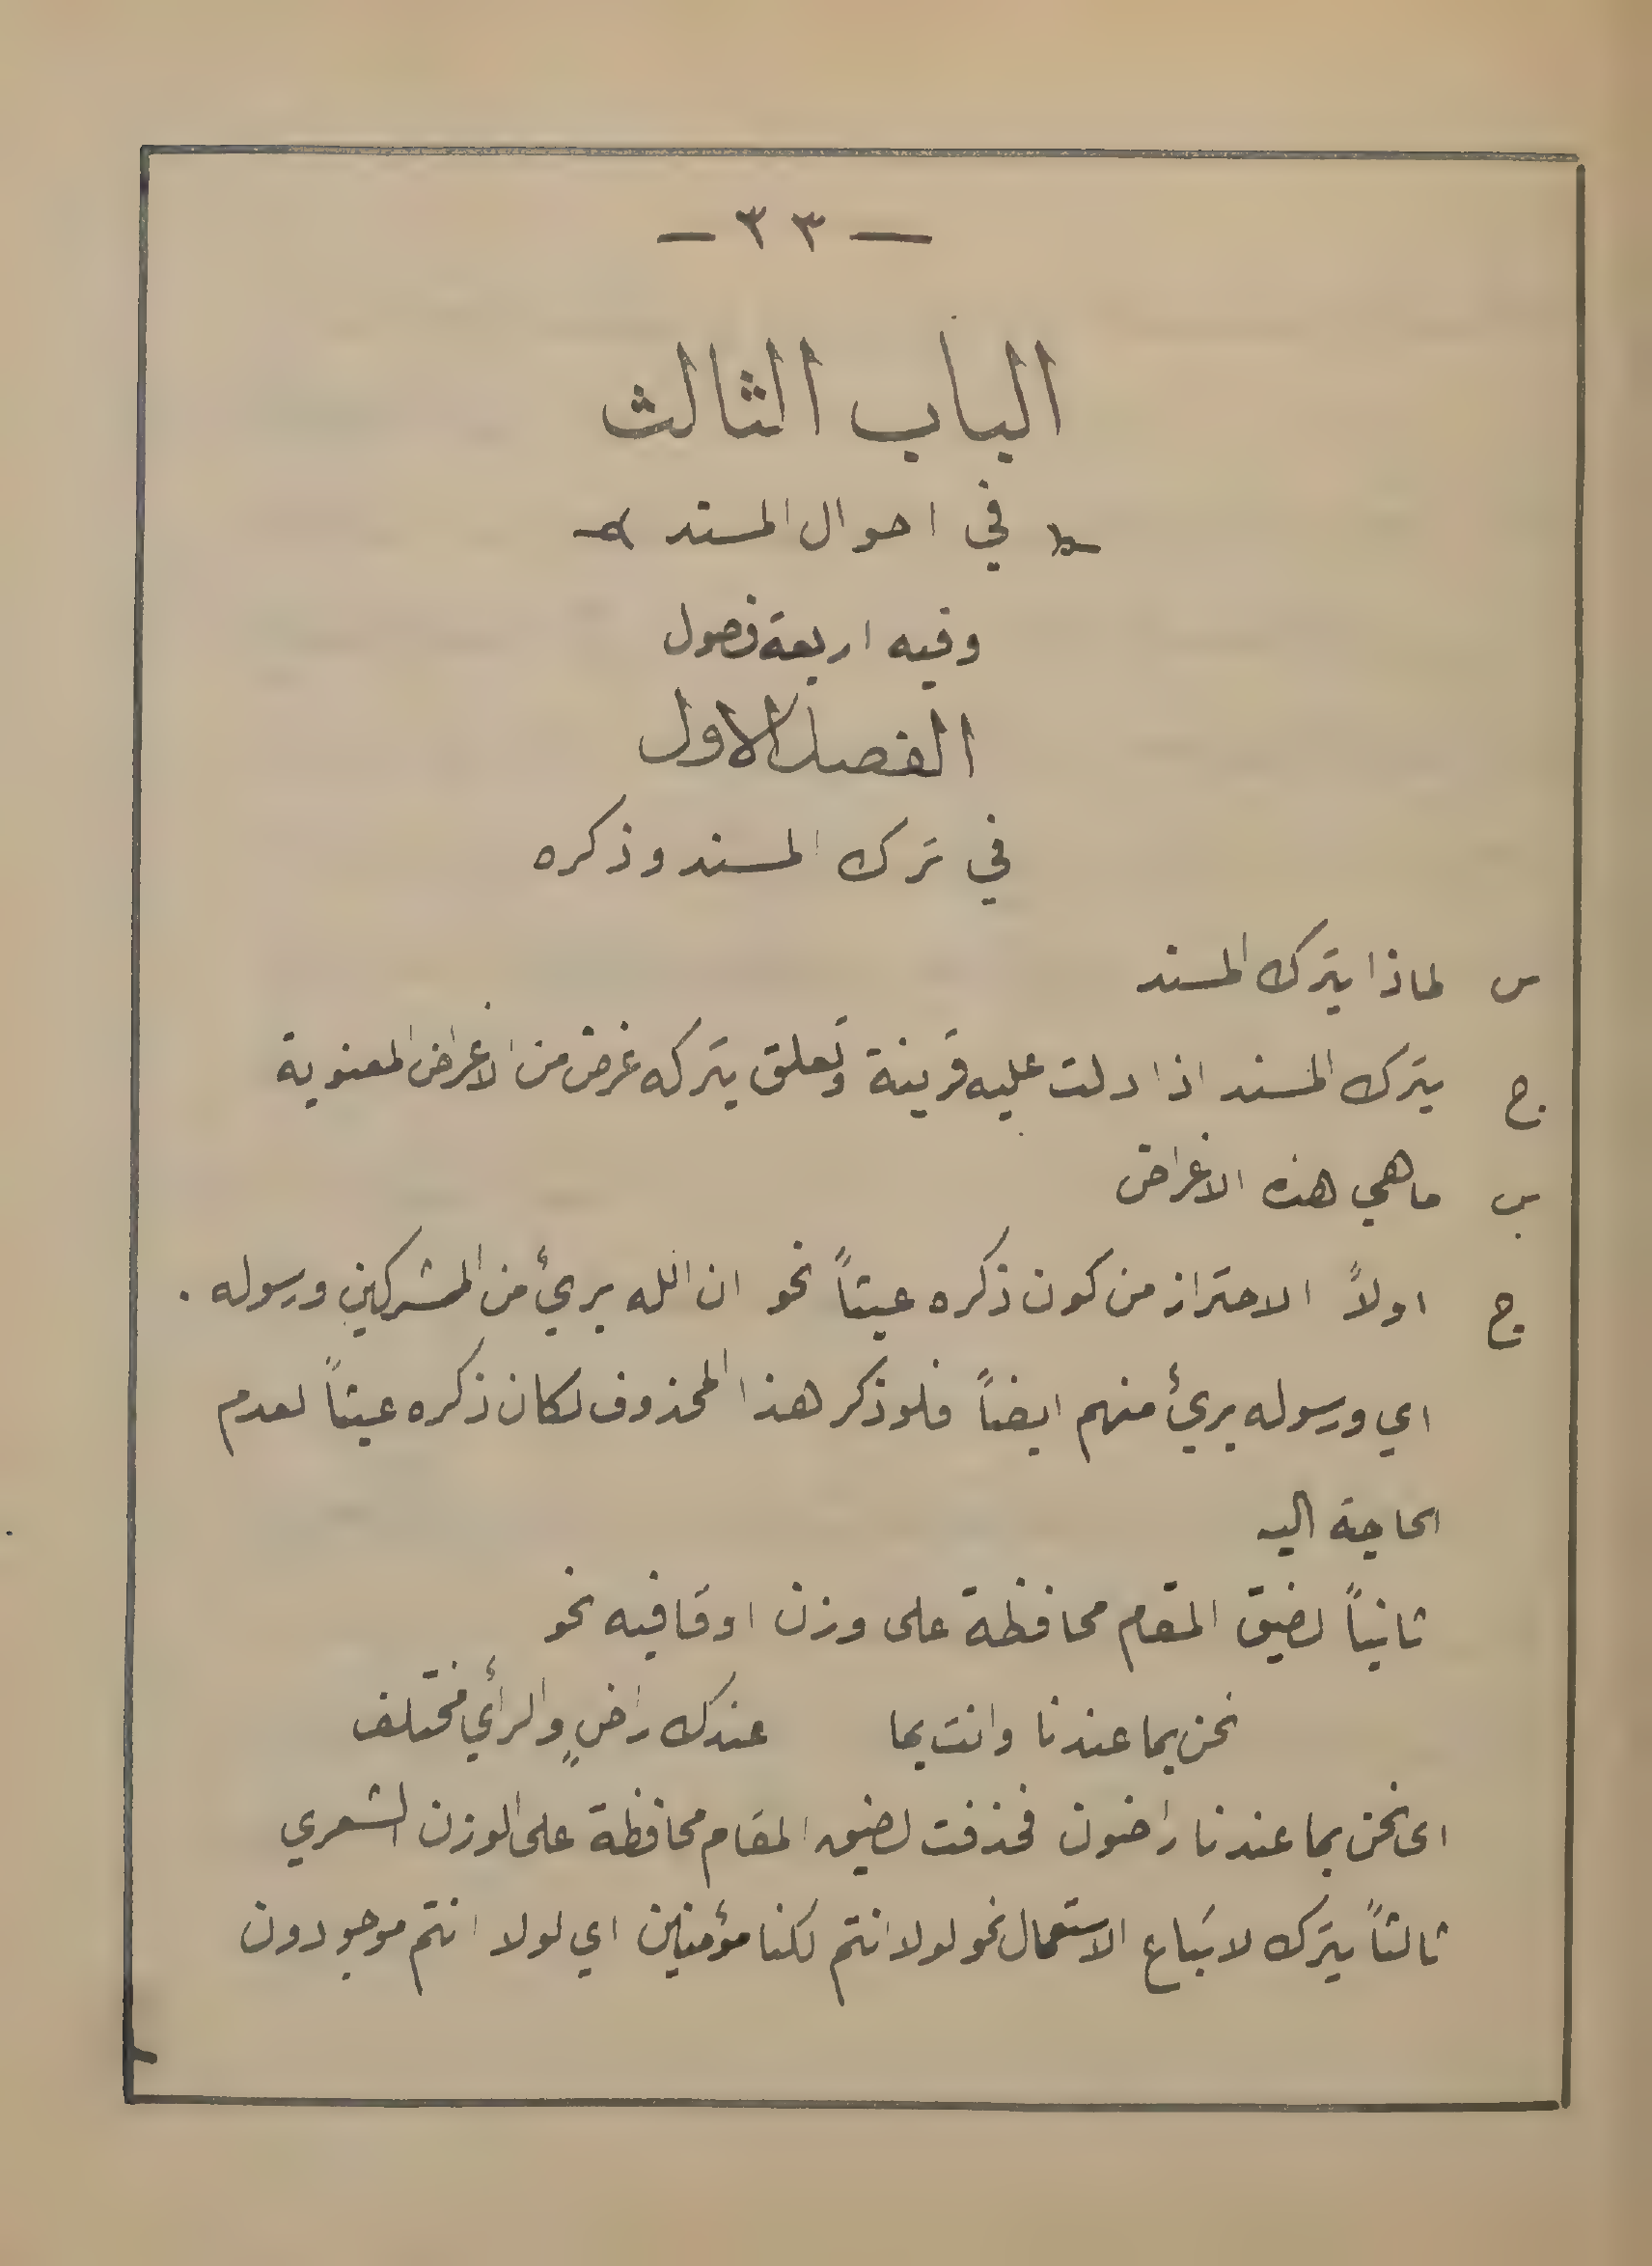 — ٣٣ —
الباب الثالث
في احوال المسند
وفيه اربعة فصول
الفصل الاول
في ترك المسند وذكره
س لماذا يترك المسند
ج يترك المسند اذا دلت عليه قرينة وتعلق بتركه غرض من الاغراض المعنوية
س ماهي هذه الاغراض
ج اولاً الاحتراز من كون ذكره عبثاً نحو ان الله بريٌ من المشركين ورسوله .
اي ورسوله بريٌ منهم ايضاً فلو ذكر هذا المحذوف لكان ذكره عبثاً لعدم
الحاجة اليه
ثانياً لضيق المقام محافظة على وزن او قافيه نحو
نحن بما عندنا وانت بما عندك راضٍ والرأي مختلف
اى نحن بما عندنا راضون فحذفت لضيق المقام محافظة على الوزن الشعري
ثالثاً يترك لاتباع الاستعمال نحو لولا انتم لكنا مؤمنين اي لولا انتم موجودون